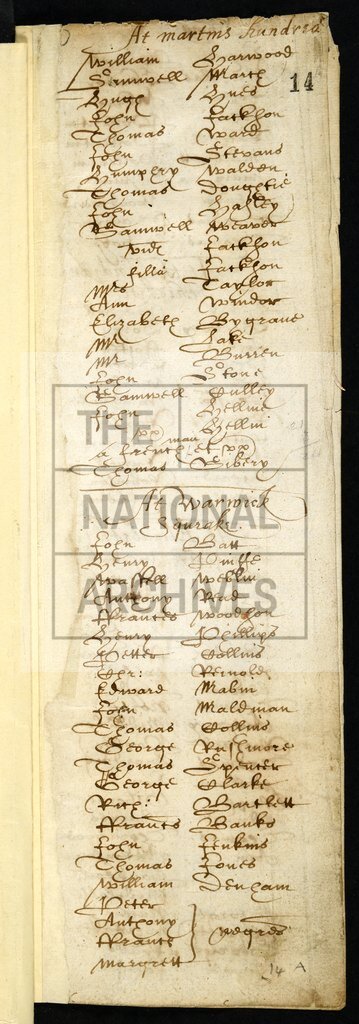 At martins hundred
William Harwood
Samwell March
14
Hugh Hues
John Jackson
Thomas Ward
John Stevans
Humphry Walden
Thomas Doughtie
John Hasley
Samwell Weaver
vid Jackson
filia Jackson
Mrs Taylor
Ann Windor
Elizabeth Bygrave
Mr Lake
Mr Burren
John Stone
Samwell Culley
John Helline
vx Hellin
a frenchman et vx
Thomas Siberry
THE
NATIONAL
ARCHIVES
At Warwick
Squrake
John Batt
Henry Pinffe
Wassell Weblin
Anthony Read
ffrances Woodson
Henry Phillips
Petter Collins
Chr: Reinold
Edward Mabin
John Maldman
Thomas Collins
George Rushmore
Thomas Spencer
George Clarke
Rich: Bartlett
ffrancs Banks
John Jenkins
Thomas Jones
William Denham
Peter
Anthony
ffrance negres
Margrett
14 A